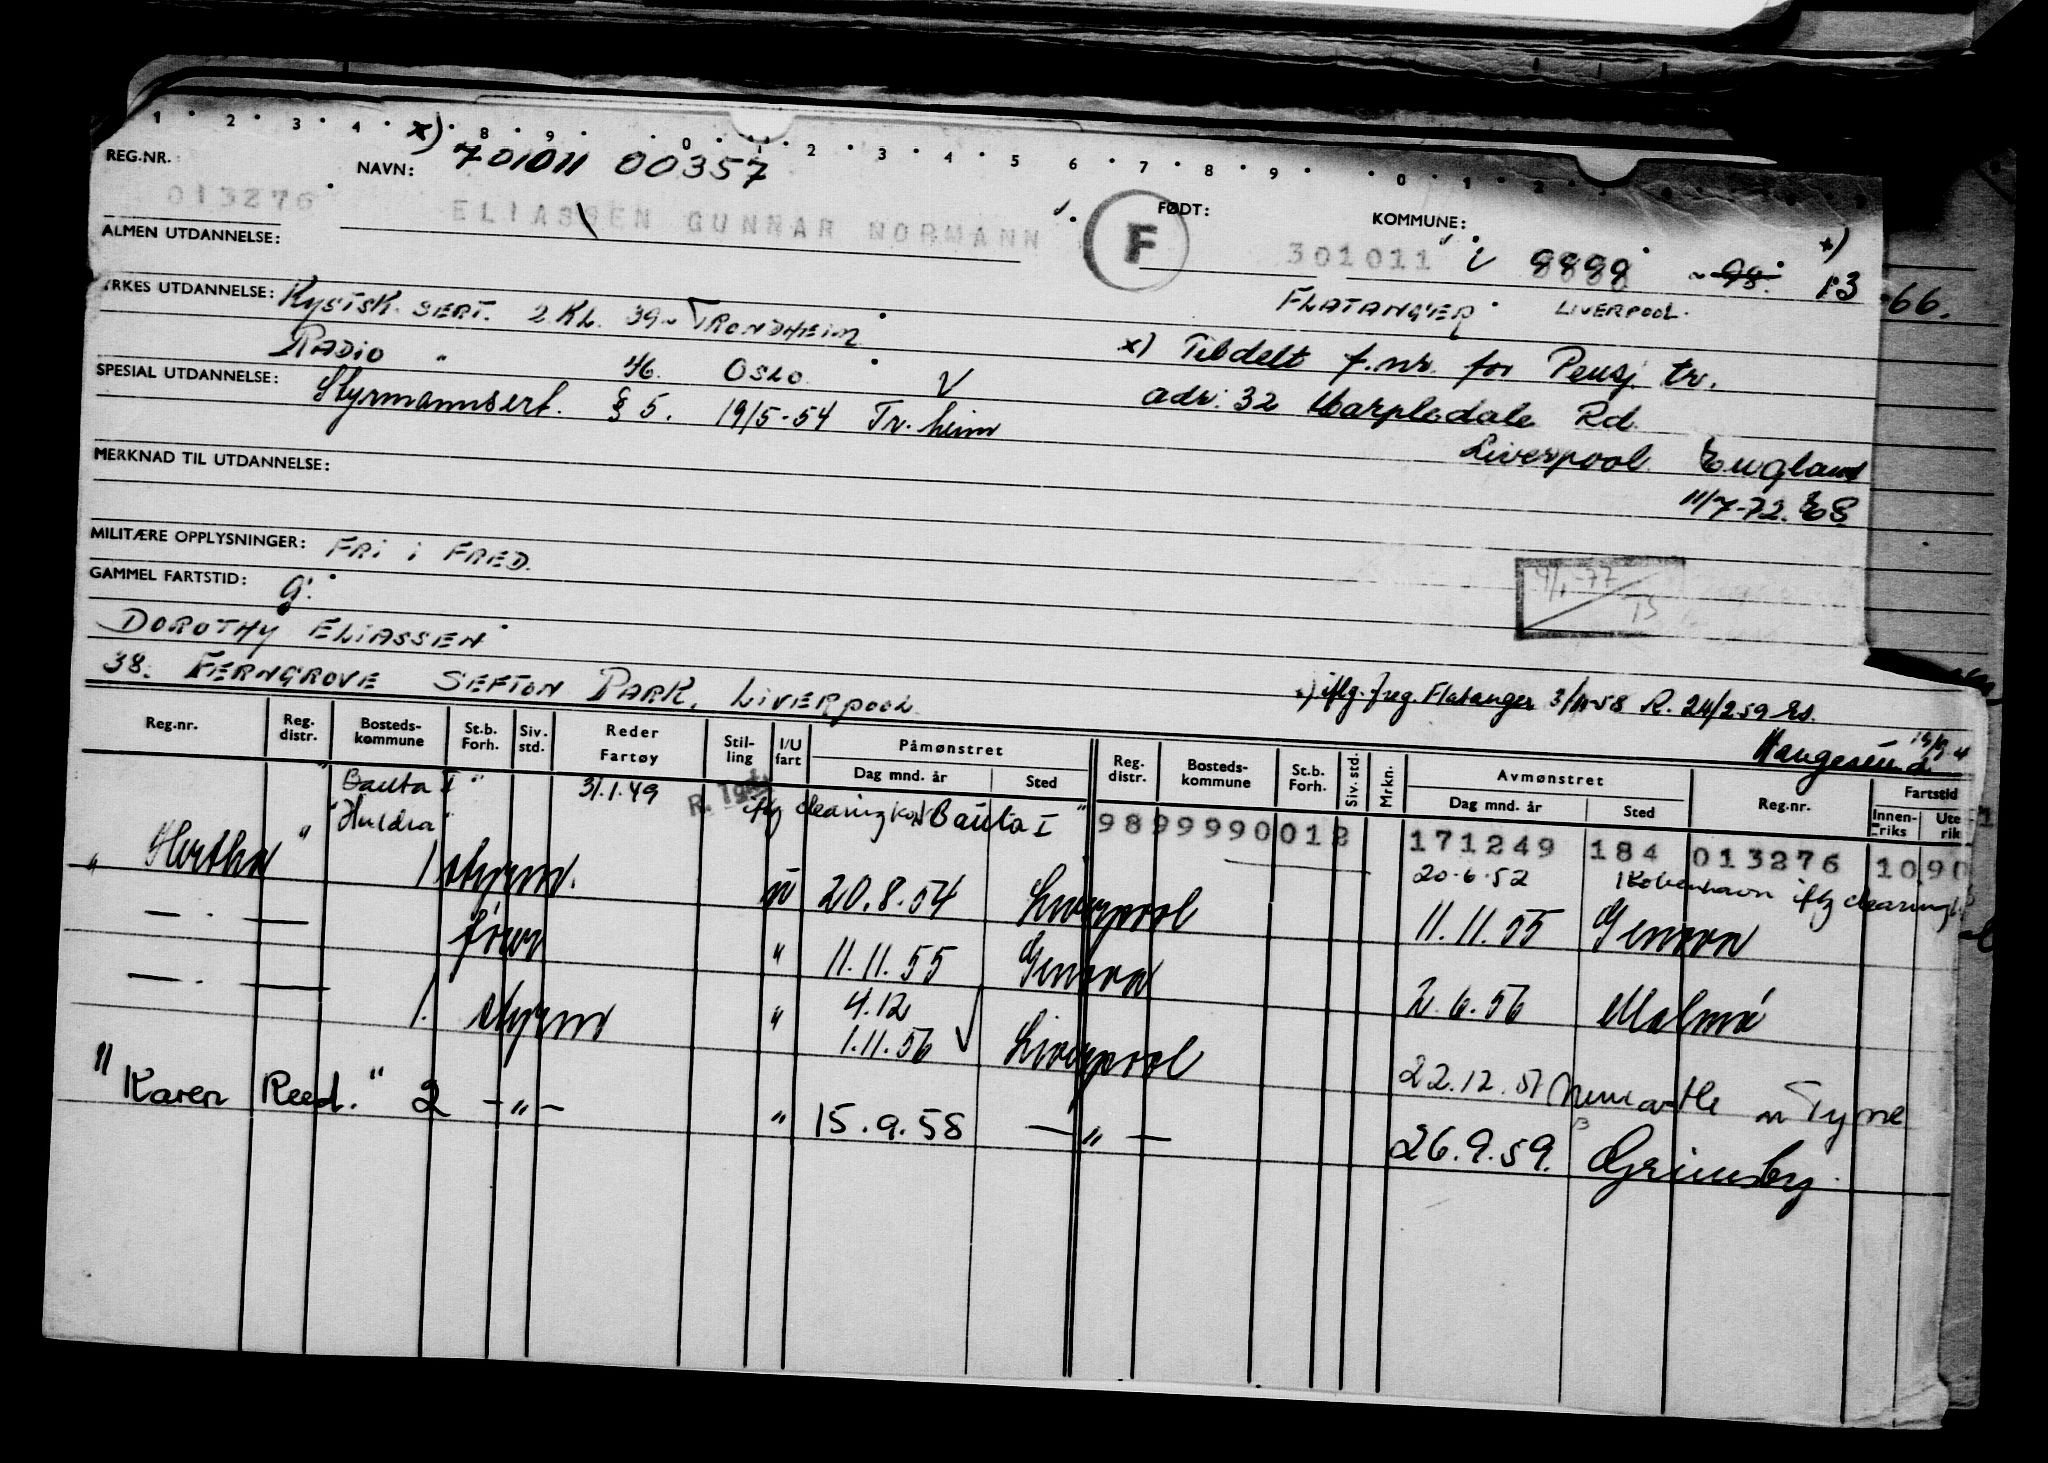 1 2 3 4 x) 8 9 0 1 2 3 4 5 6 7 8 9 0 1 2
REG.NR. NAVN: 701011 00357 FØDT: KOMMUNE:
013276 ELIASSEN GUNNAR NORMANN F 301011 i 9899 98. x) 13 66.
ALMEN UTDANNELSE:
FLATANGER LIVERPOOL.
YRKES UTDANNELSE: KYSTSK. SERT. 2.KL. 39 TRONDHEIM
RADIO " 46. OSLO. x) Tildelt f.nr. for Pensj tr.
SPESIAL UTDANNELSE: Styrmannsert. § 5. 19/5-54 Tr. heim V adr: 32 Marpledale Rd.
Liverpool England
MERKNAD TIL UTDANNELSE:
11/7-72. ES.
MILITÆRE OPPLYSNINGER: FRI I FRED.
GAMMEL FARTSTID: G.
DOROTHY ELIASSEN
38. FERNGROVE SEFTON PARK, LIVERPOOL.
iflg. freg. Flatanger 3/11-58 R. 24/2 59
Haugesund
Reg.nr. Reg. distr. Bosteds-kommune St.b. Forh. Siv. std. Reder Fartøy Stil-ling I/U fart Påmønstret Dag mnd. år Sted Reg. distr. Bosteds-kommune St.b. Forh. Siv. std. Mrkn. Avmønstret Dag mnd. år Sted Reg.nr. Fartstid Innen-riks Ute rik
"Bauta I" 31.1.49 iflg clearing kon Bauta I" 9899990012 171249 184 013276 1090
"Huldra" 20.6.52 København iflg clearing
"Hertha" 1 styrm. u 20.8.54 Liverpool 11.11.55 Genova
— . — fører " 11.11.55 Genova 2.6.56 Malmö
— . — 1. styrm " 4.12 1.11.56 Liverpool 22.12.57 Newcastle on Tyne
"Karen Reed." 2 — " — " 15.9.58 — " — 26.9.59. Grimsby